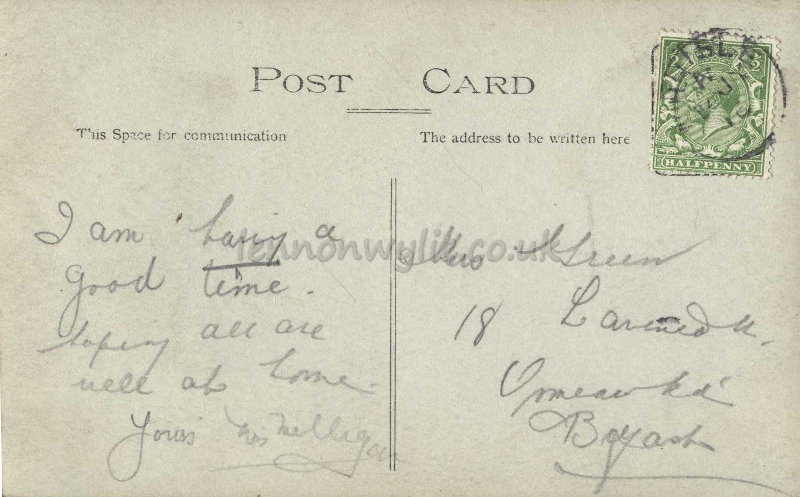 POST CARD
This Space for communication
The address to be written here
HALFPENNY
lennonwylie.co.uk
I am having a
good time.
hoping all are
well at home.
Yours Mrs Milligan
Mrs Green
18
Ormeau Rd
Belfast